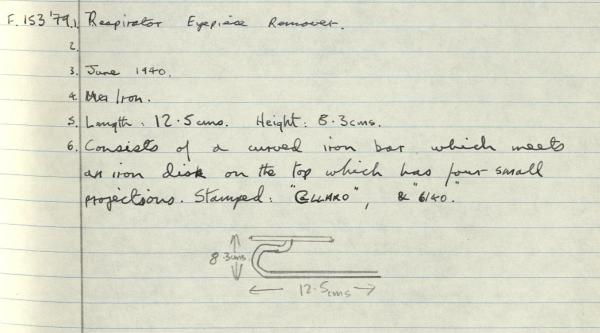 F.153'79.1. Respirator Eyepiece Remover.
2.
3. June 1940.
4. Iron.
5. Length: 12.5cms. Height: 8.3cms.
6. Consists of a curved iron bar which meets
an iron disk on the top which has four small
projections. Stamped: "GLLAKO", & "6/40."
8.3cms
12.5cms